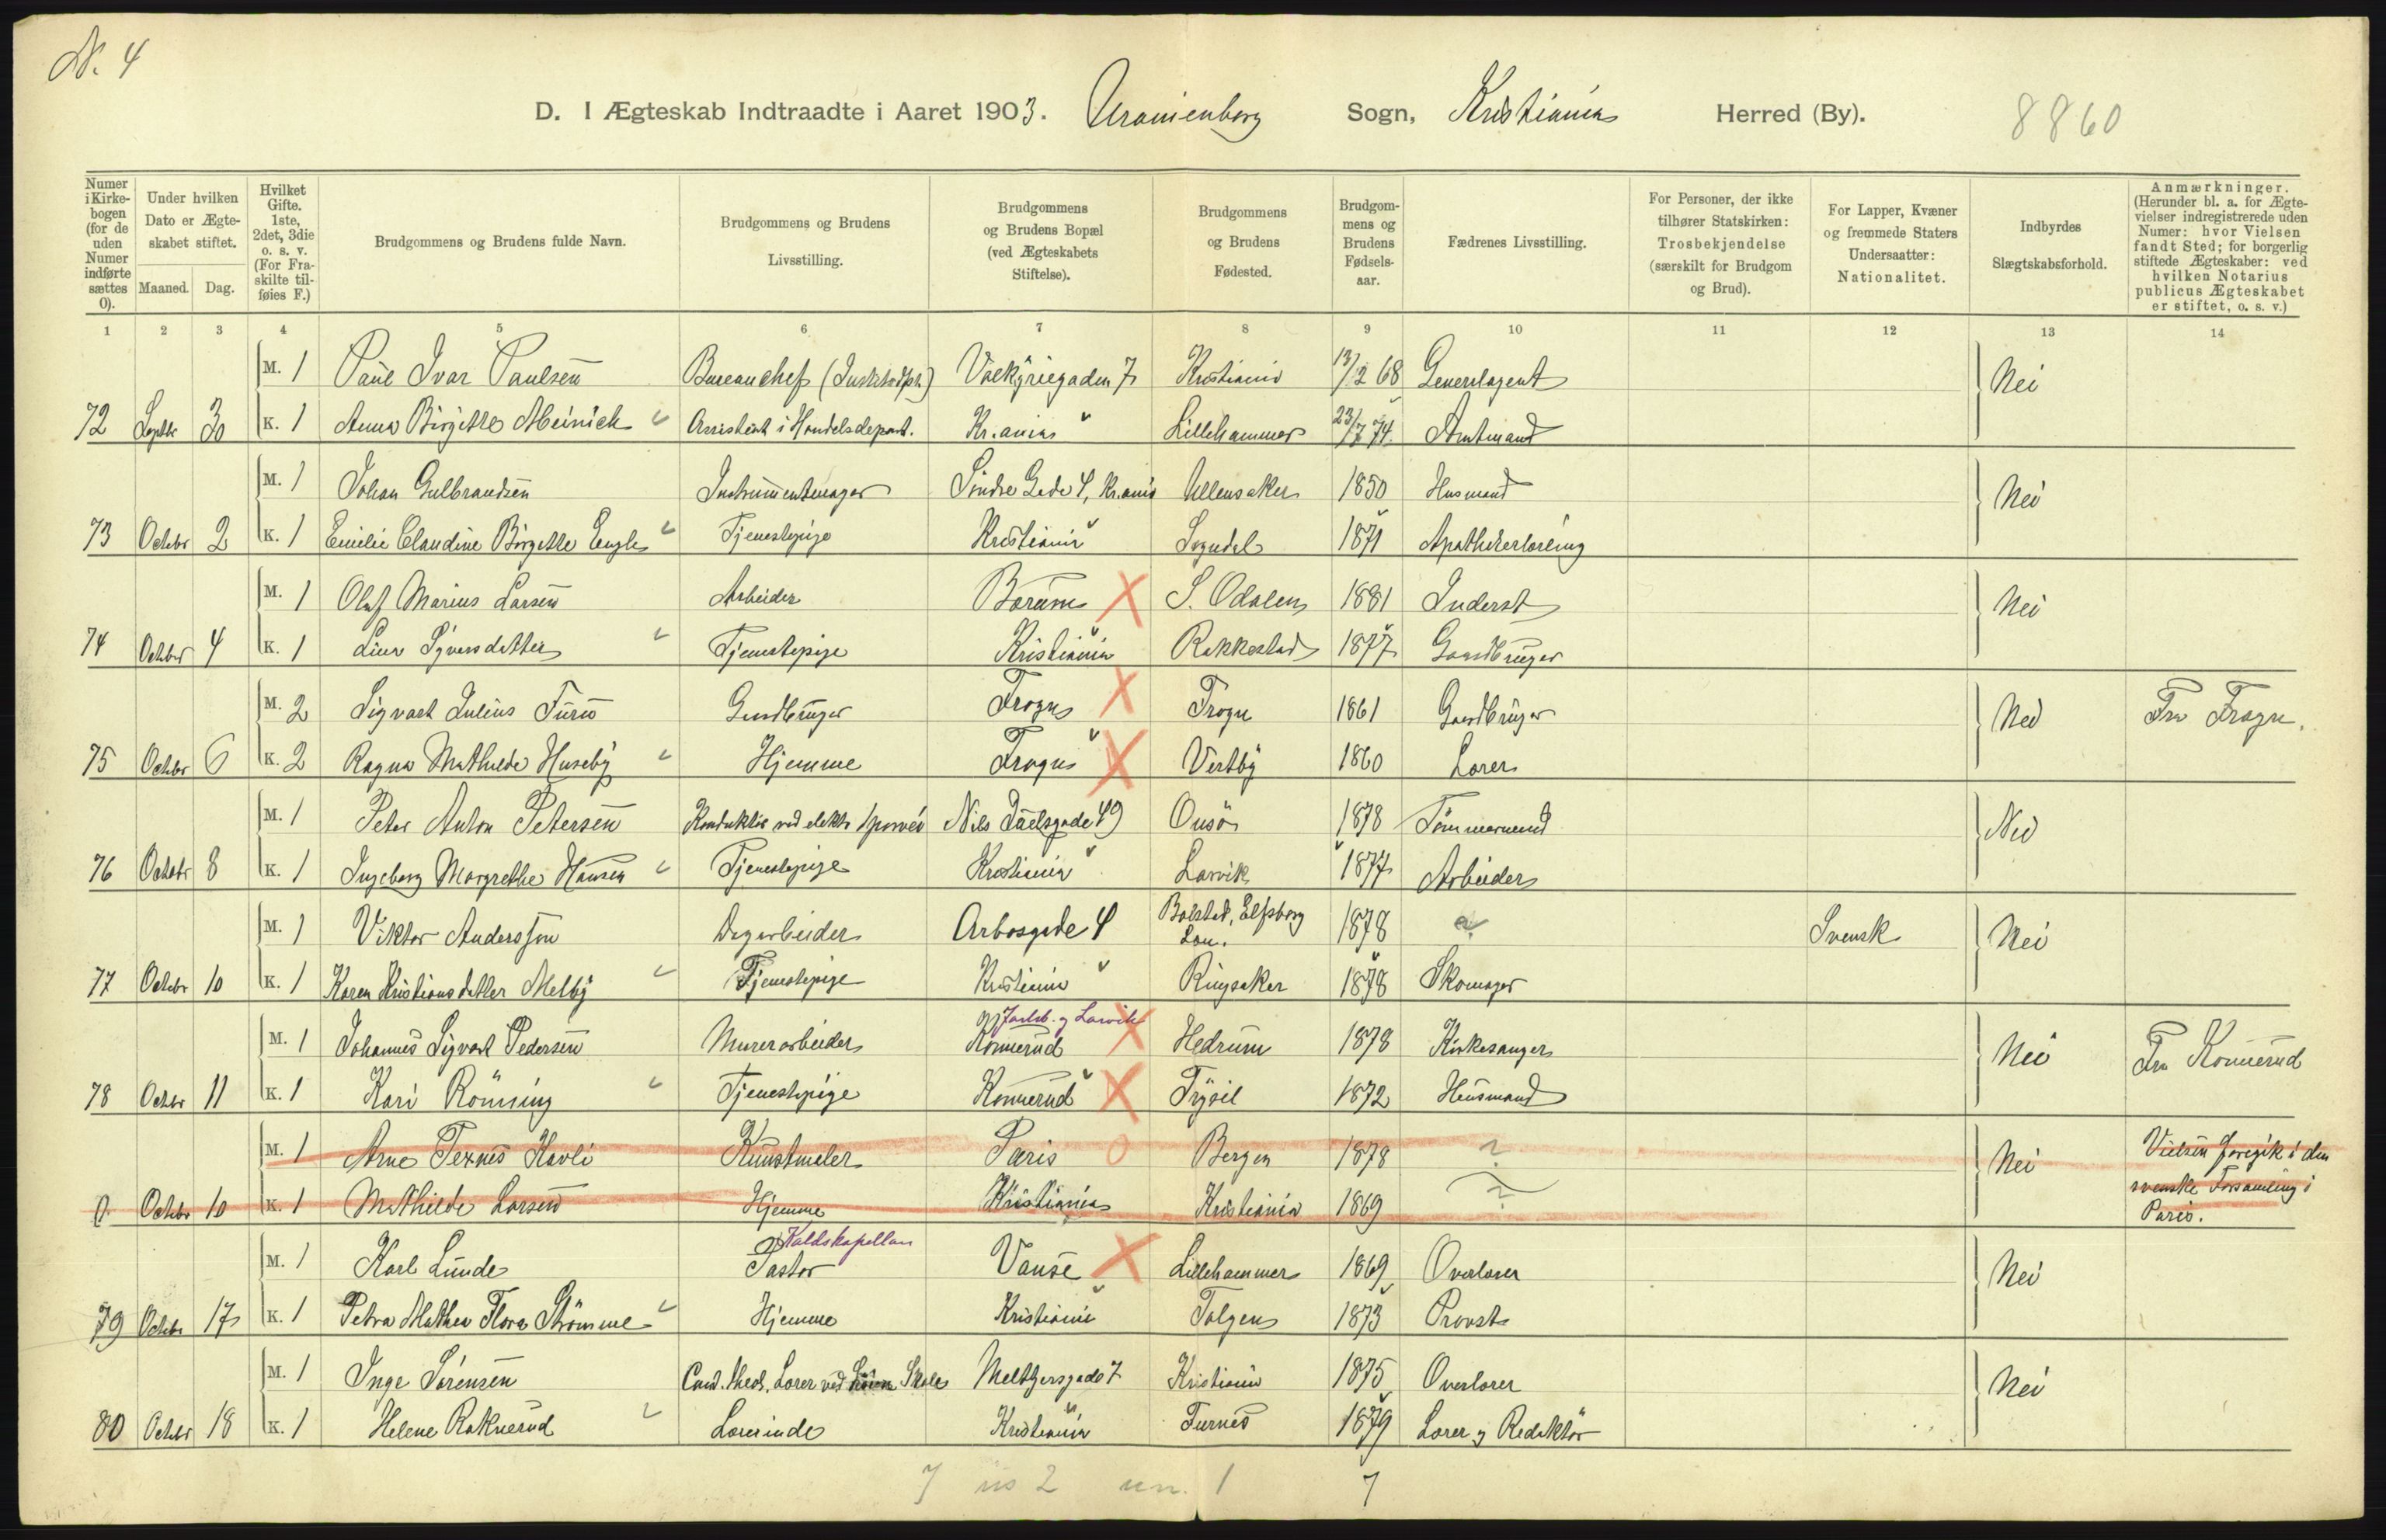 N. 4
D. I Ægteskab Indtraadte i Aaret 1903. Uranienborg Sogn, Kristiania Herred (By). 8860
Numer i Kirkebogen (for de uden Numer indførte sættes 0).
Under hvilken Dato er Ægteskabet stiftet.
Maaned. Dag.
Hvilket Gifte. 1ste, 2det, 3die o. s. v. (For Fraskilte tilføies F.)
Brudgommens og Brudens fulde Navn.
Brudgommens og Brudens Livsstilling.
Brudgommens og Brudens Bopæl (ved Ægteskabets Stiftelse).
Brudgommens og Brudens Fødested.
Brudgommens og Brudens Fødselsaar.
Fædrenes Livsstilling.
For Personer, der ikke tilhører Statskirken: Trosbekjendelse (særskilt for Brudgom og Brud).
For Lapper, Kvæner og fremmede Staters Undersaatter: Nationalitet.
Indbyrdes Slægtskabsforhold.
Anmærkninger. (Herunder bl. a. for Ægtevielser indregistrerede uden Numer: hvor Vielsen fandt Sted; for borgerlig stiftede Ægteskaber: ved hvilken Notarius publicus Ægteskabet er stiftet, o. s. v.)
1 2 3 4 5 6 7 8 9 10 11 12 13 14
M. 1 Paul Ivar Paulsen Bureauchef Valkyriegaden 7 Kristiania 13/2 68 Generalagent Nei
72 Septbr 30 K. 1 Anna Birgitte Meinich Assistent i Handelsdepart. Kr.ania Lillehammer 23/7 74 Amtmand
M. 1 Johan Gulbrandsen Instrumentmager Søndre Gade 4, Kr.ania Ullensaker 1850 Husmand Nei
73 Octobr 2 K. 1 Emilie Claudine Birgitte Engh Tjenestepige Kristiania Sogndal 1871 Apothekerlærling
M. 1 Olaf Marius Larsen Arbeider Bærum X S. Odalen 1881 Inderst Nei
74 Octobr 4 K. 1 Lina Syversdatter Tjenestepige Kristiania Rakkestad 1877 Gaardbruger
M. 2 Sigvart Julius Furu Gaardbruger Frogn X Frogn 1861 Gaardbruger Nei Fra Frogn.
75 Octobr 6 K. 2 Ragna Mathilde Huseby Hjemme Frogn X Vestby 1860 Lærer
M. 1 Peter Anton Petersen Konduktør ved elektr. sporvei Nils Juelsgade 49 Onsø 1878 Tømmermand Nei
76 Octobr 8 K. 1 Ingeborg Margrethe Hansen Tjenestepige Kristiania Larvik 1877 Arbeider
M. 1 Viktor Andersson Dagarbeider Arbosgade 4 Bolstad, Elfsborg Län. 1878 Svensk Nei
77 Octobr 10 K. 1 Karen Kristiansdatter Melby Tjenestepige Kristiania Ringsaker 1878 Skomager
Jarlsb. og Larvik
M. 1 Johannes Sigvart Pedersen Murerarbeider Konnerud X Hedrum 1878 Kirkesanger Nei Fra Konnerud
78 Octbr 11 K. 1 Kari Rönning Tjenestepige Konnerud X Trysil 1872 Husmand
M. 1 Arne Texnes Kavli Kunstmaler Paris O Bergen 1878 ? Nei Vielsen foregik i den
0 Octobr 10 K. 1 Mathilde Larsen Hjemme Kristiania Kristiania 1869 ? svenske Forsamling i
Paris.
Kaldskapellan
M. 1 Karl Lunde Pastor Vanse X Lillehammer 1869 Overlærer Nei
79 Octobr 17 K. 1 Petra Mathea Flora Strømme Hjemme Kristiania Tolgen 1873 Provst
M. 1 Inge Sørensen Cand. theol. Lærer ved Skole Meltzersgade 7 Kristiania 1875 Overlærer Nei
80 Octobr 18 K. 1 Helene Raknerud Lærerinde Kristiania Furnes 1879 Lærer og Redaktør
7 us 2 un. 1 7